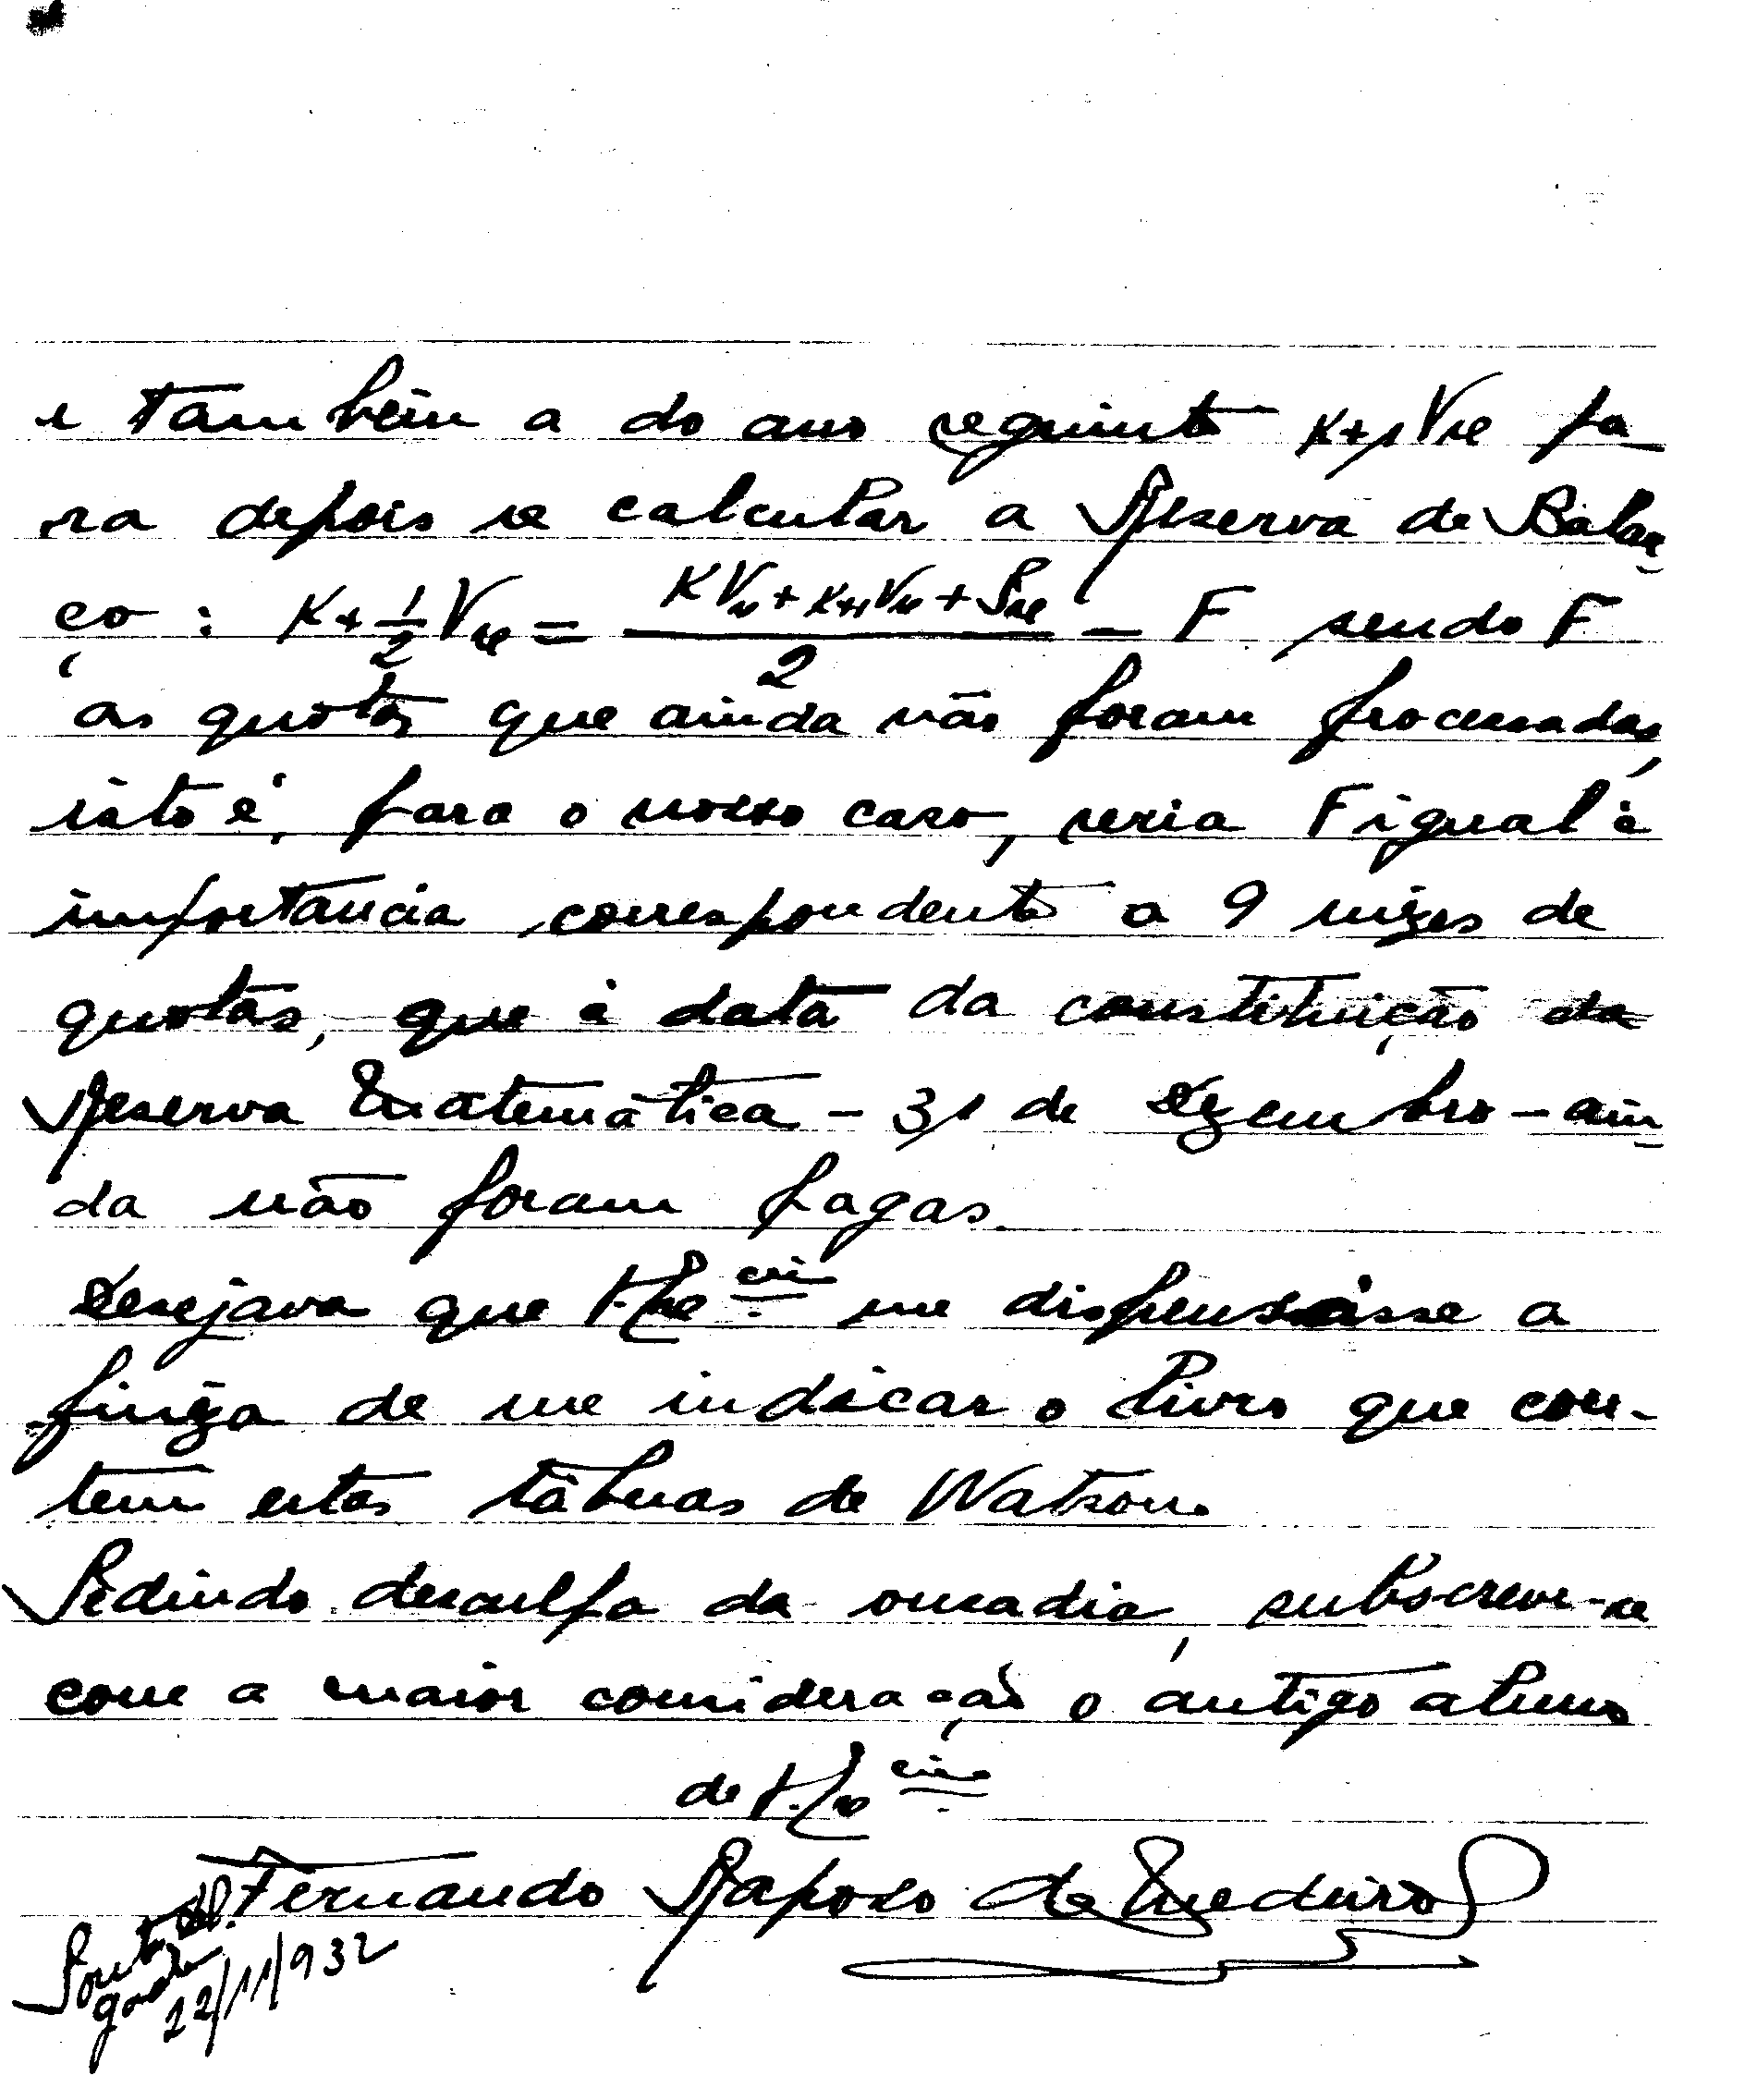 e também a do ano seguinte K+1Vx pa-
ra depois se calcular a Reserva de Balan-
ço: K+½Vx = (KVx + K+1Vx + Px)/2 - F sendo F
as quotas que ainda não foram processadas,
isto é, para o nosso caso, seria F igual à
importância correspondente a 9 mêzes de
quotas, que à data da constituição da
Reserva Matemática - 31 de Dezembro - ain-
da não foram pagas.
Desejava que V. Ex.cia me dispensásse a
finêza de me indicar o livro que con-
tem estas tábuas de Watson.
Pedindo desculpa da ousadia, subscreve-se
com a maior consideração o antigo aluno
de V. Ex.cia
Fernando Raposo de Medeiros
Ponta Del-
gada
22/11/932